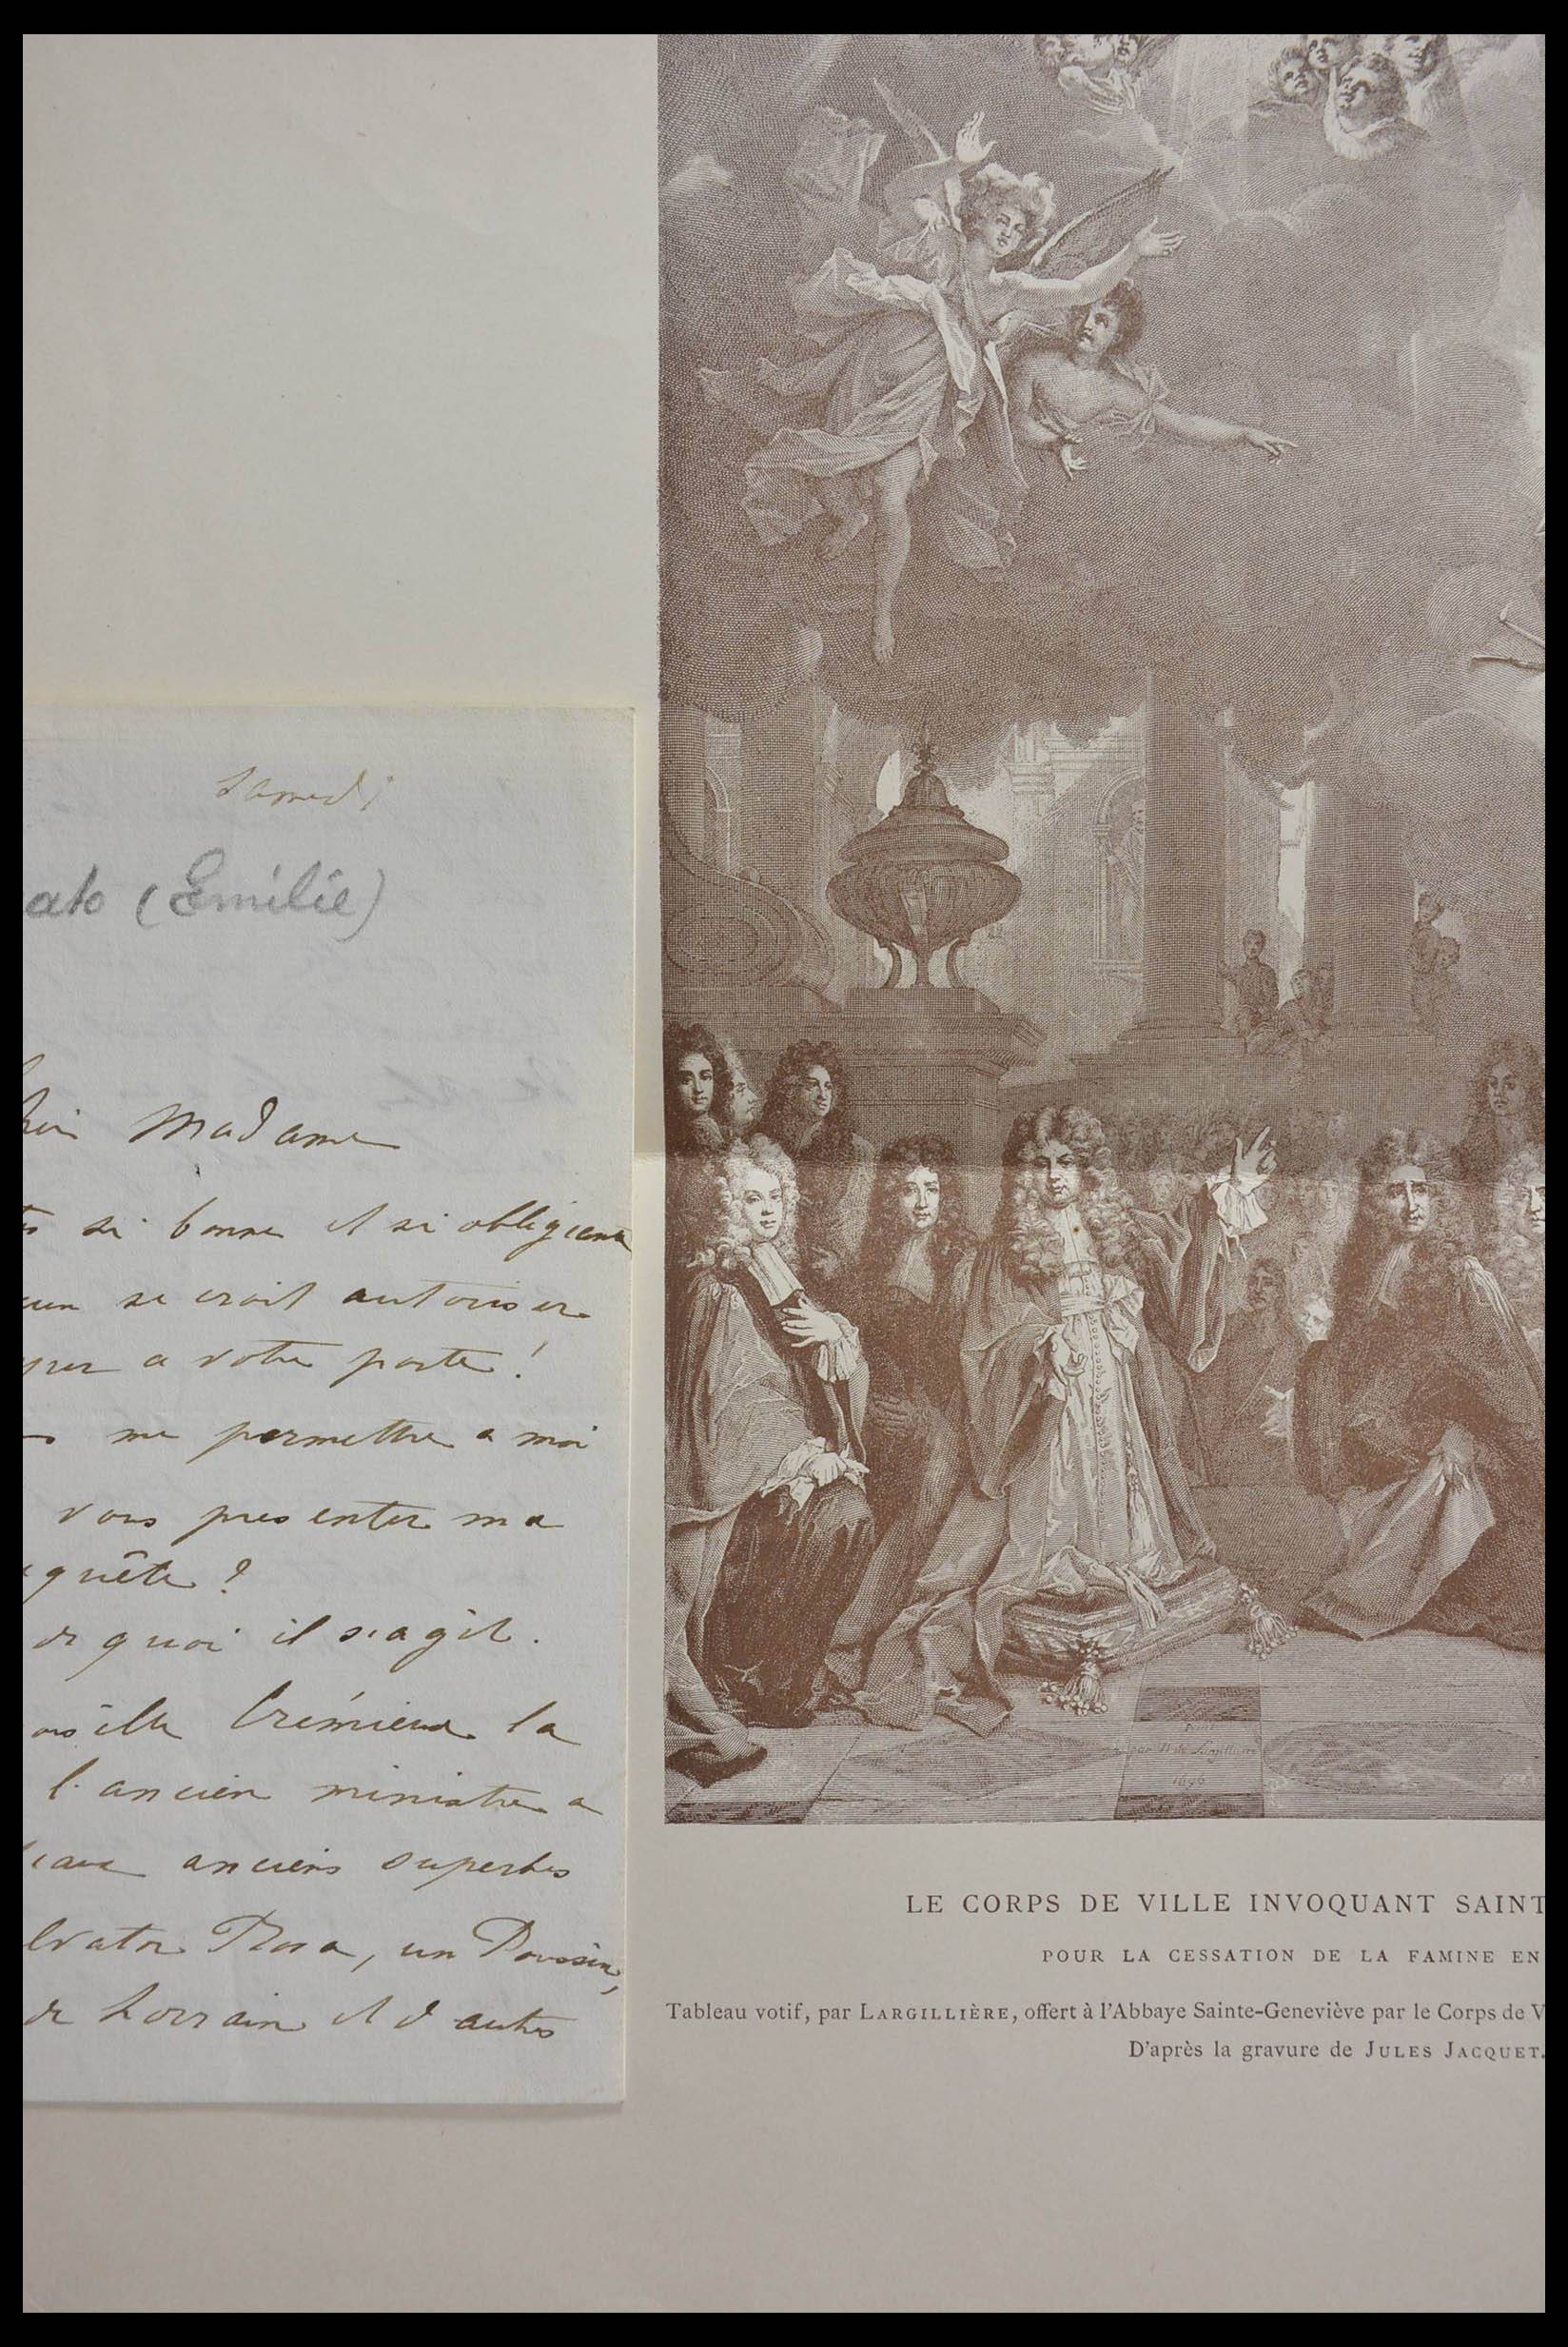 samedi
ato (Emilie)
Madame
si bonne et si obligeante
se croit autoriser
a votre porte !
me permettre a moi
vous presenter ma
quête ?
de quoi il s'agit.
Crémieux la
l'ancien ministre a
anciens superbes
lvator Rosa, un Poussin,
de Lorrain et d'autres
par N. de Largilliere
1696
LE CORPS DE VILLE INVOQUANT SAINT
POUR LA CESSATION DE LA FAMINE EN
Tableau votif, par LARGILLIÈRE, offert à l'Abbaye Sainte-Geneviève par le Corps de V
D'après la gravure de JULES JACQUET.